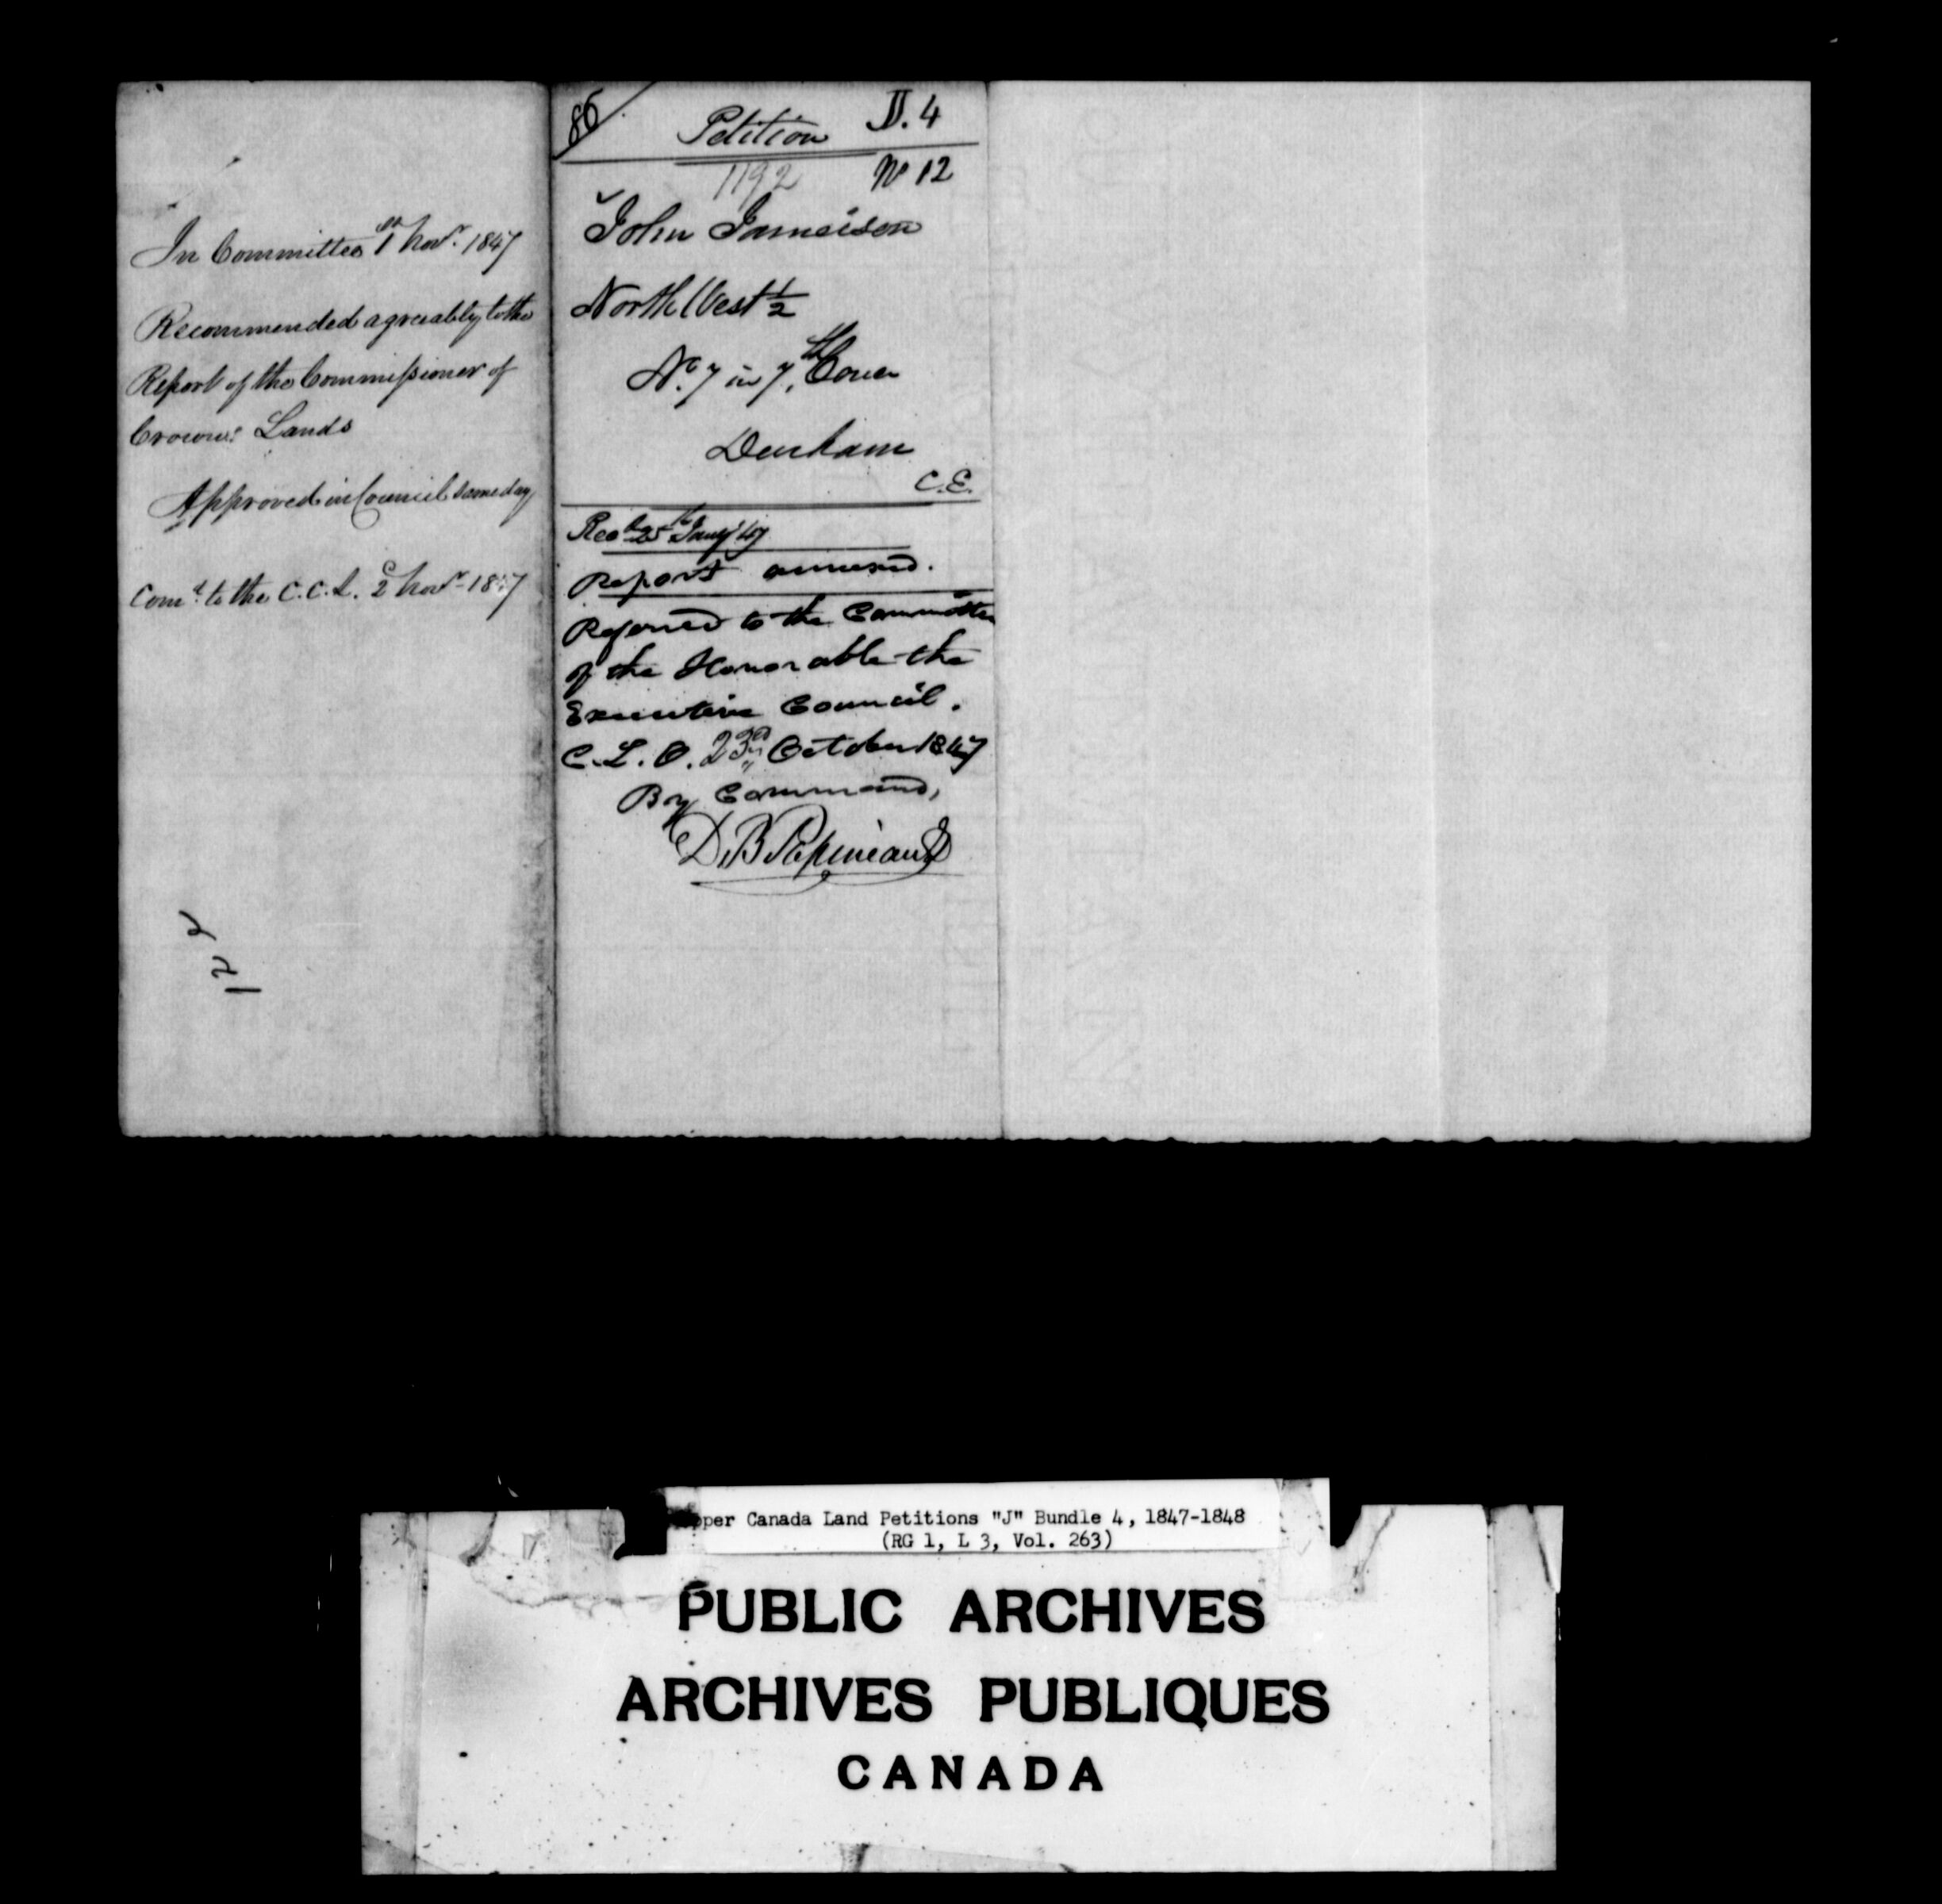 In Committee 1st Novr. 1847
Recommended agreeably to the
Report of the Commissioner of
Crown Lands
Approved in Council same day
Comd. to the C.C.L. 2d Novr. 1847
86
Petition J. 4
1192 No 12
John Jameison
North West 1/2
No. 7 in 7th Conn
Durham
C.E.
Recd 25th Jany '47
Report annexed.
Referred to the Committee
of the Honorable the
Executive Council.
C.L.O. 23rd October 1847
By Command,
D.B. Papineau
pper Canada Land Petitions "J" Bundle 4, 1847-1848
(RG 1, L 3, Vol. 263)
PUBLIC ARCHIVES
ARCHIVES PUBLIQUES
CANADA